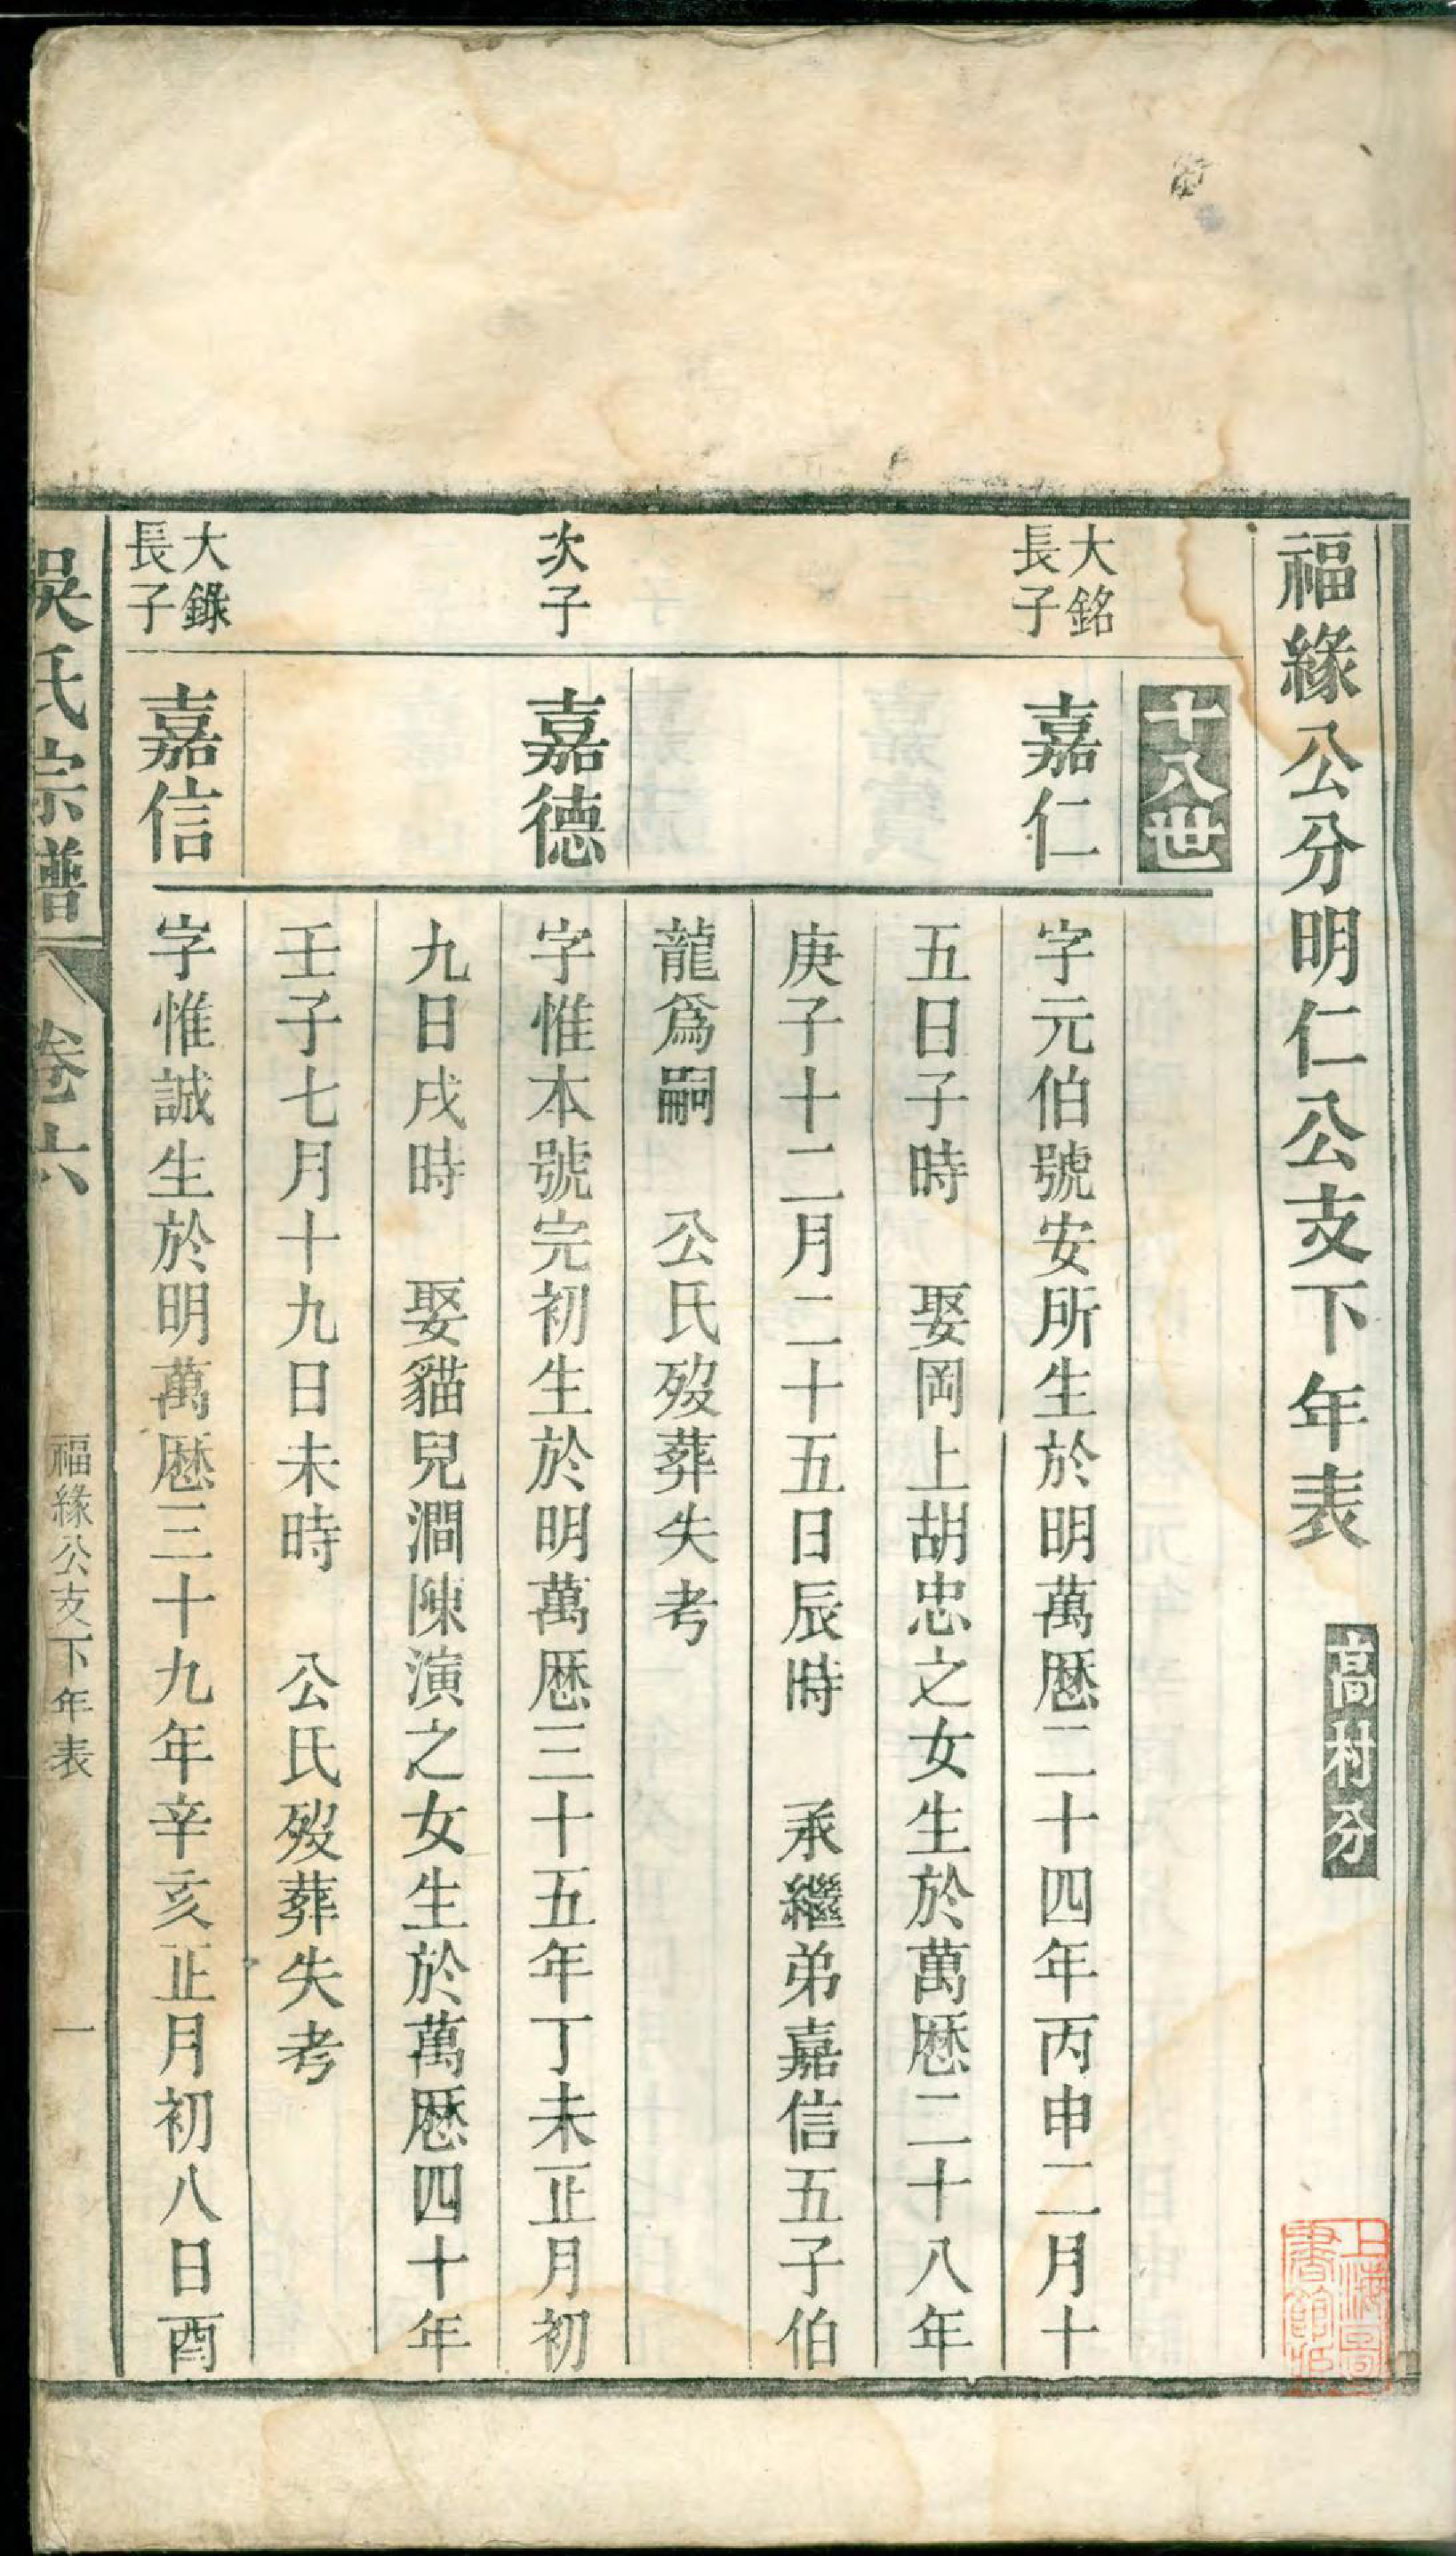 福緣公分明仁公支下年表
高村分
十八世
大銘
長子
嘉仁
字元伯號安所生於明萬厯二十四年丙申二月十
五日子時　娶岡上胡忠之女生於萬厯二十八年
庚子十二月二十五日辰時　承繼弟嘉信五子伯
龍爲嗣　公氏歿葬失考
次子
嘉德
字惟本號完初生於明萬厯三十五年丁未正月初
九日戌時　娶貓兒澗陳演之女生於萬厯四十年
壬子七月十九日未時　公氏歿葬失考
大錄
長子
嘉信
字惟誠生於明萬厯三十九年辛亥正月初八日酉
吳氏宗譜
卷六
福緣公支下年表
一
上海圖
書館